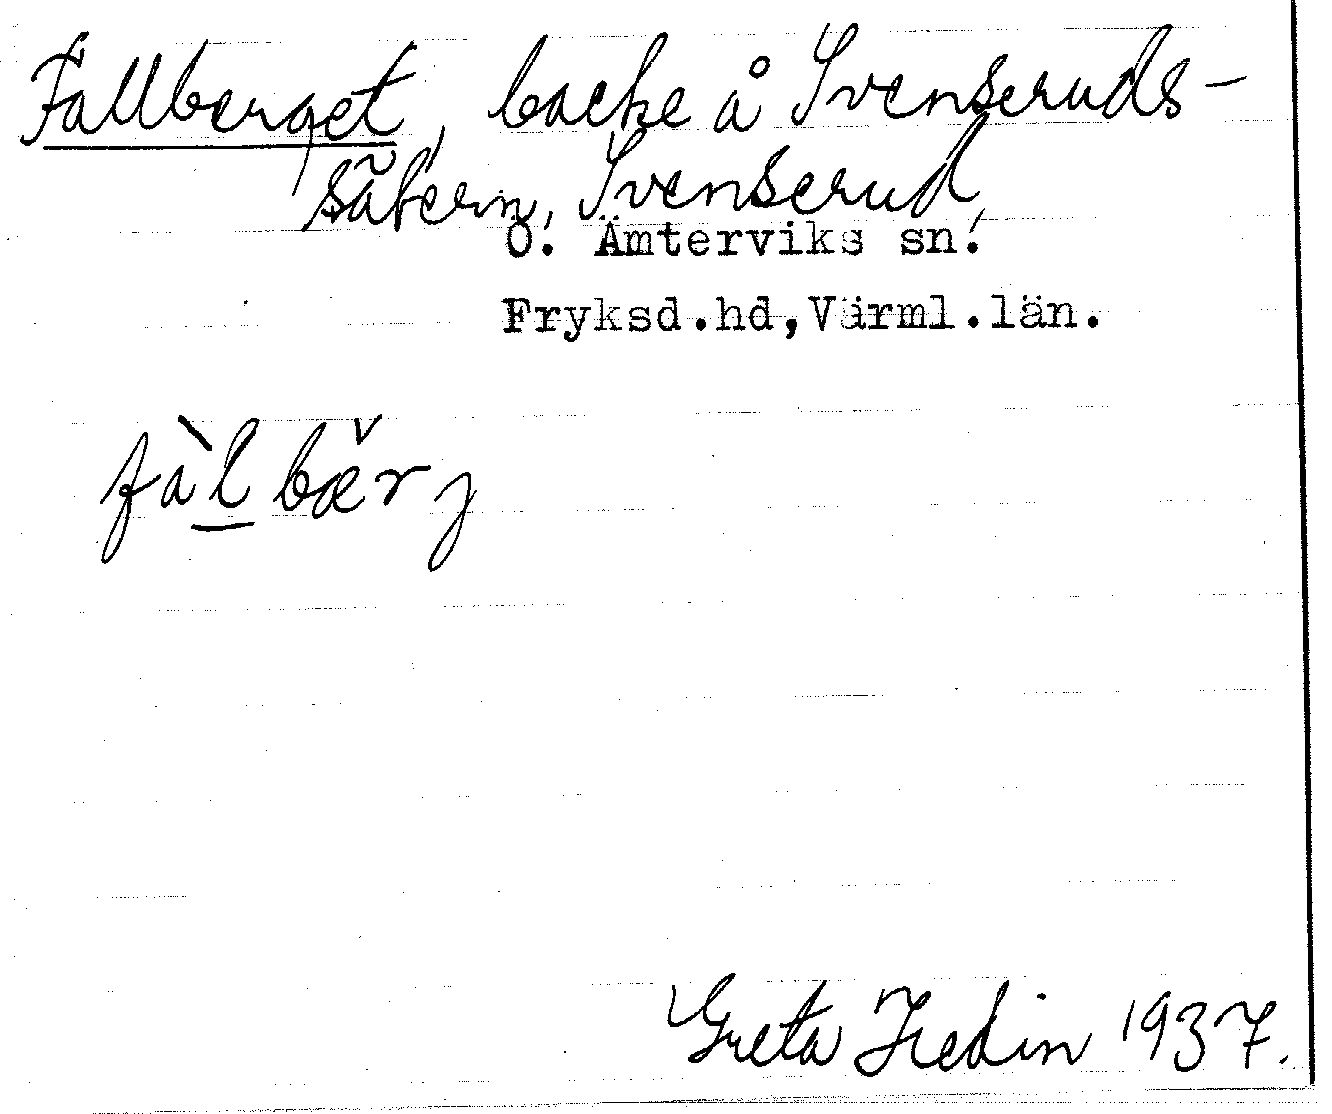 Fallberget, backe å Svenseruds-
sätern, Svenserud,
Ö. Ämterviks sn.
Fryksd.hd,Värml.län.
fàl bærj
Greta Hedin 1937.